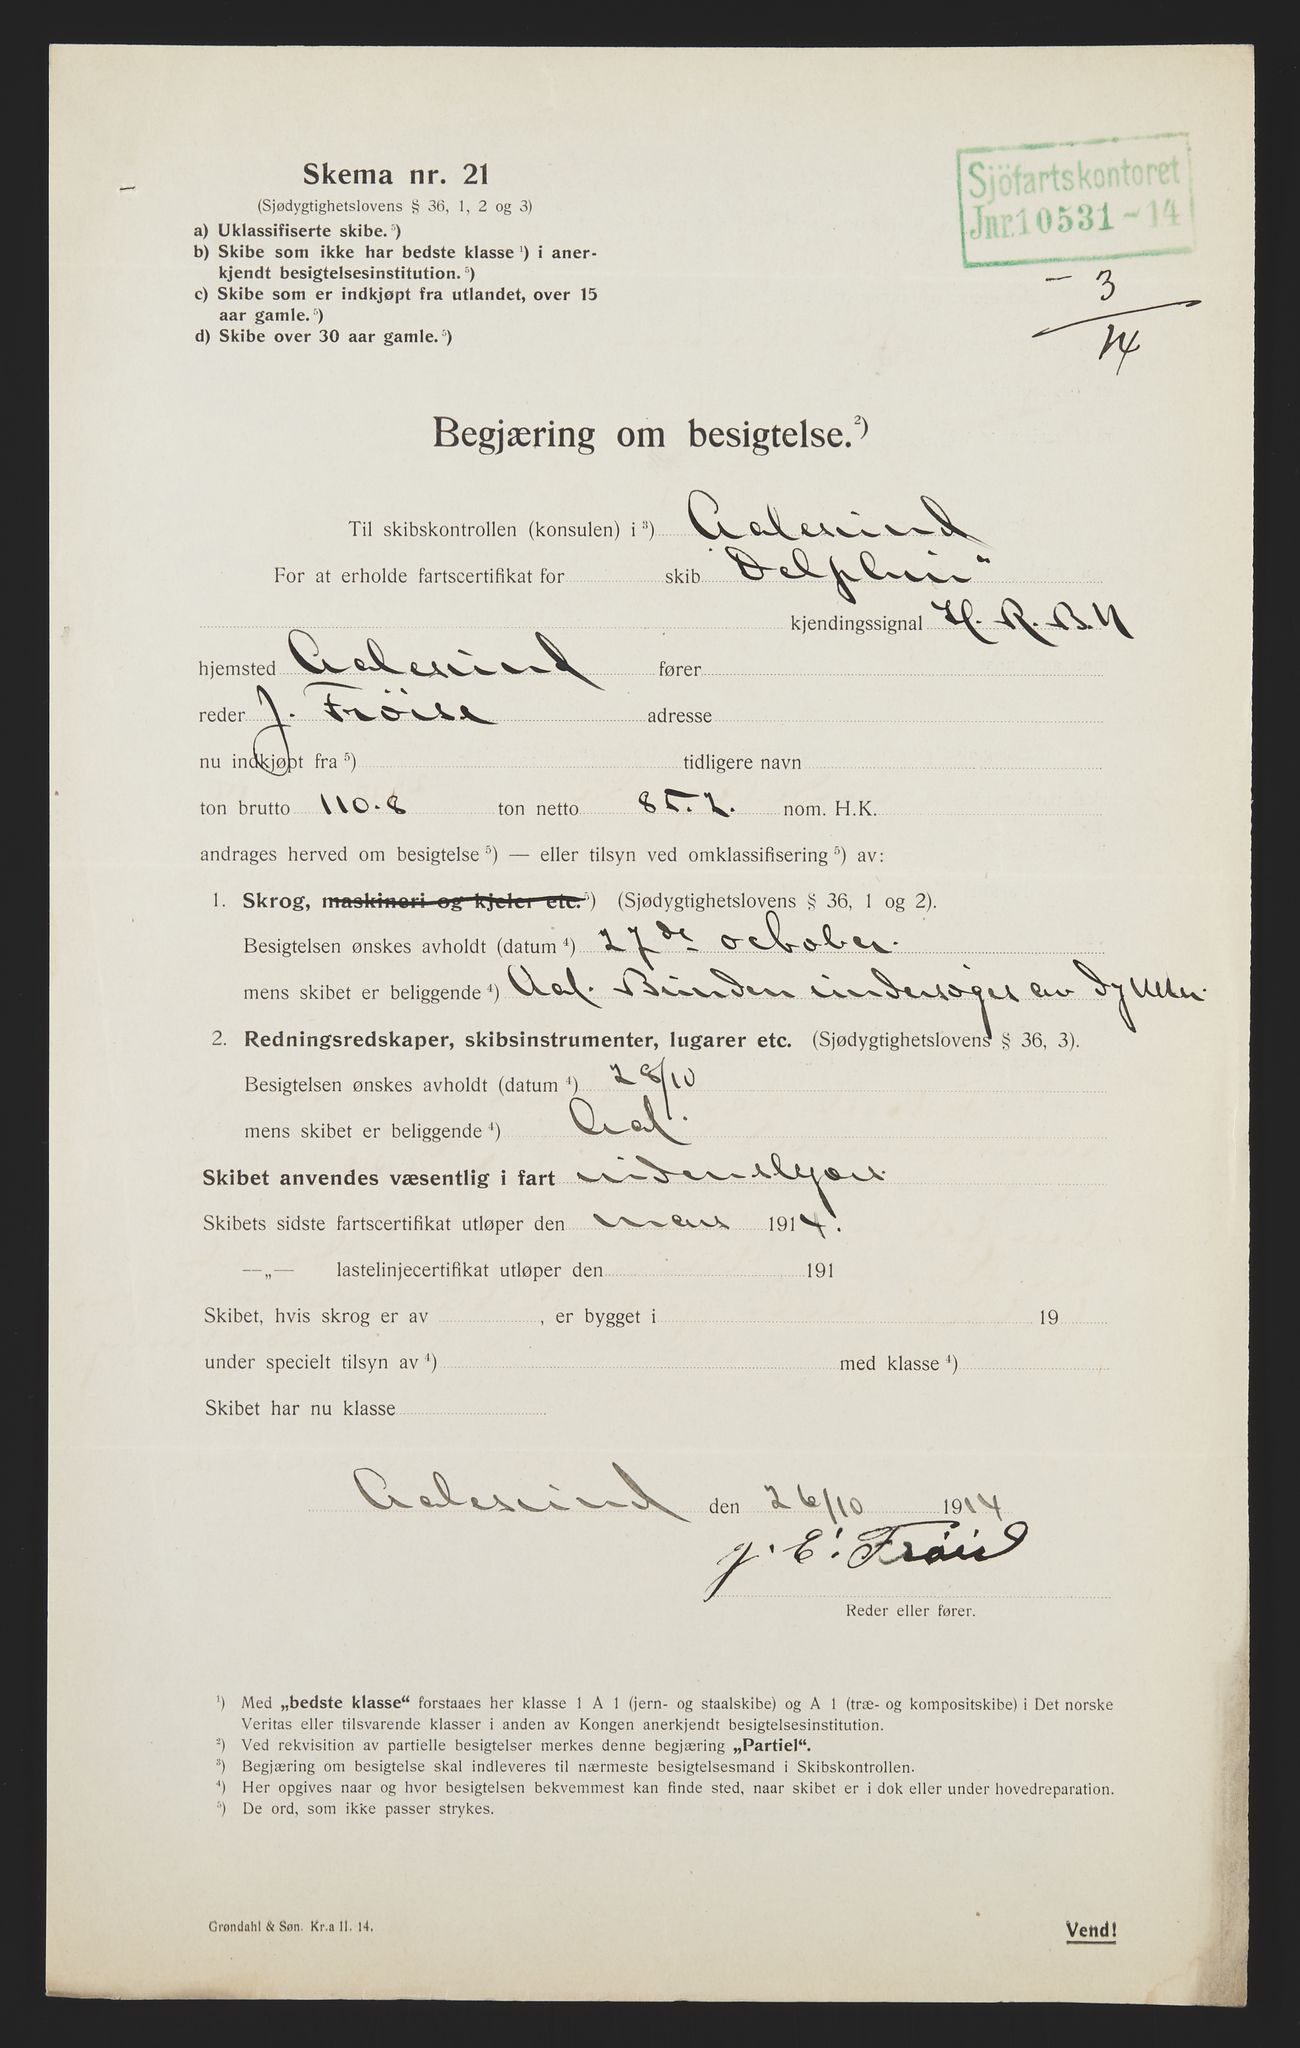 Skema nr. 21
(Sjødygtighetslovens § 36, 1, 2 og 3)
a) Uklassifiserte skibe.⁵)
b) Skibe som ikke har bedste klasse¹) i aner-
kjendt besigtelsesinstitution.⁵)
c) Skibe som er indkjøpt fra utlandet, over 15
aar gamle.⁵)
d) Skibe over 30 aar gamle.⁵)
Sjöfartskontoret
Jnr. 10531-14
- 3
14
Begjæring om besigtelse.²)
Til skibskontrollen (konsulen) i³) Aalesund
For at erholde fartscertifikat for skib "Delphin"
kjendingssignal H. R. B. N
hjemsted Aalesund fører
reder J. Fröise adresse
nu indkjøpt fra⁵) tidligere navn
ton brutto 110.8 ton netto 85.2. nom. H.K.
andrages herved om besigtelse⁵) — eller tilsyn ved omklassifisering⁵) av:
1. Skrog, maskineri og kjeler etc.⁵) (Sjødygtighetslovens § 36, 1 og 2).
Besigtelsen ønskes avholdt (datum⁴) 27de october.
mens skibet er beliggende⁴) Aal. Bunden undersøges av dykker.
2. Redningsredskaper, skibsinstrumenter, lugarer etc. (Sjødygtighetslovens § 36, 3).
Besigtelsen ønskes avholdt (datum⁴) 28/10
mens skibet er beliggende⁴) Aal.
Skibet anvendes væsentlig i fart udenskjærs.
Skibets sidste fartscertifikat utløper den mars 1914.
—„— lastelinjecertifikat utløper den 191
Skibet, hvis skrog er av , er bygget i 19
under specielt tilsyn av⁴) med klasse⁴)
Skibet har nu klasse
Aalesund den 26/10 1914
J. E. Fröisa
Reder eller fører.
¹) Med „bedste klasse“ forstaaes her klasse 1 A 1 (jern- og staalskibe) og A 1 (træ- og kompositskibe) i Det norske
Veritas eller tilsvarende klasser i anden av Kongen anerkjendt besigtelsesinstitution.
²) Ved rekvisition av partielle besigtelser merkes denne begjæring „Partiel“.
³) Begjæring om besigtelse skal indleveres til nærmeste besigtelsesmand i Skibskontrollen.
⁴) Her opgives naar og hvor besigtelsen bekvemmest kan finde sted, naar skibet er i dok eller under hovedreparation.
⁵) De ord, som ikke passer strykes.
Grøndahl & Søn. Kr.a II. 14.
Vend!